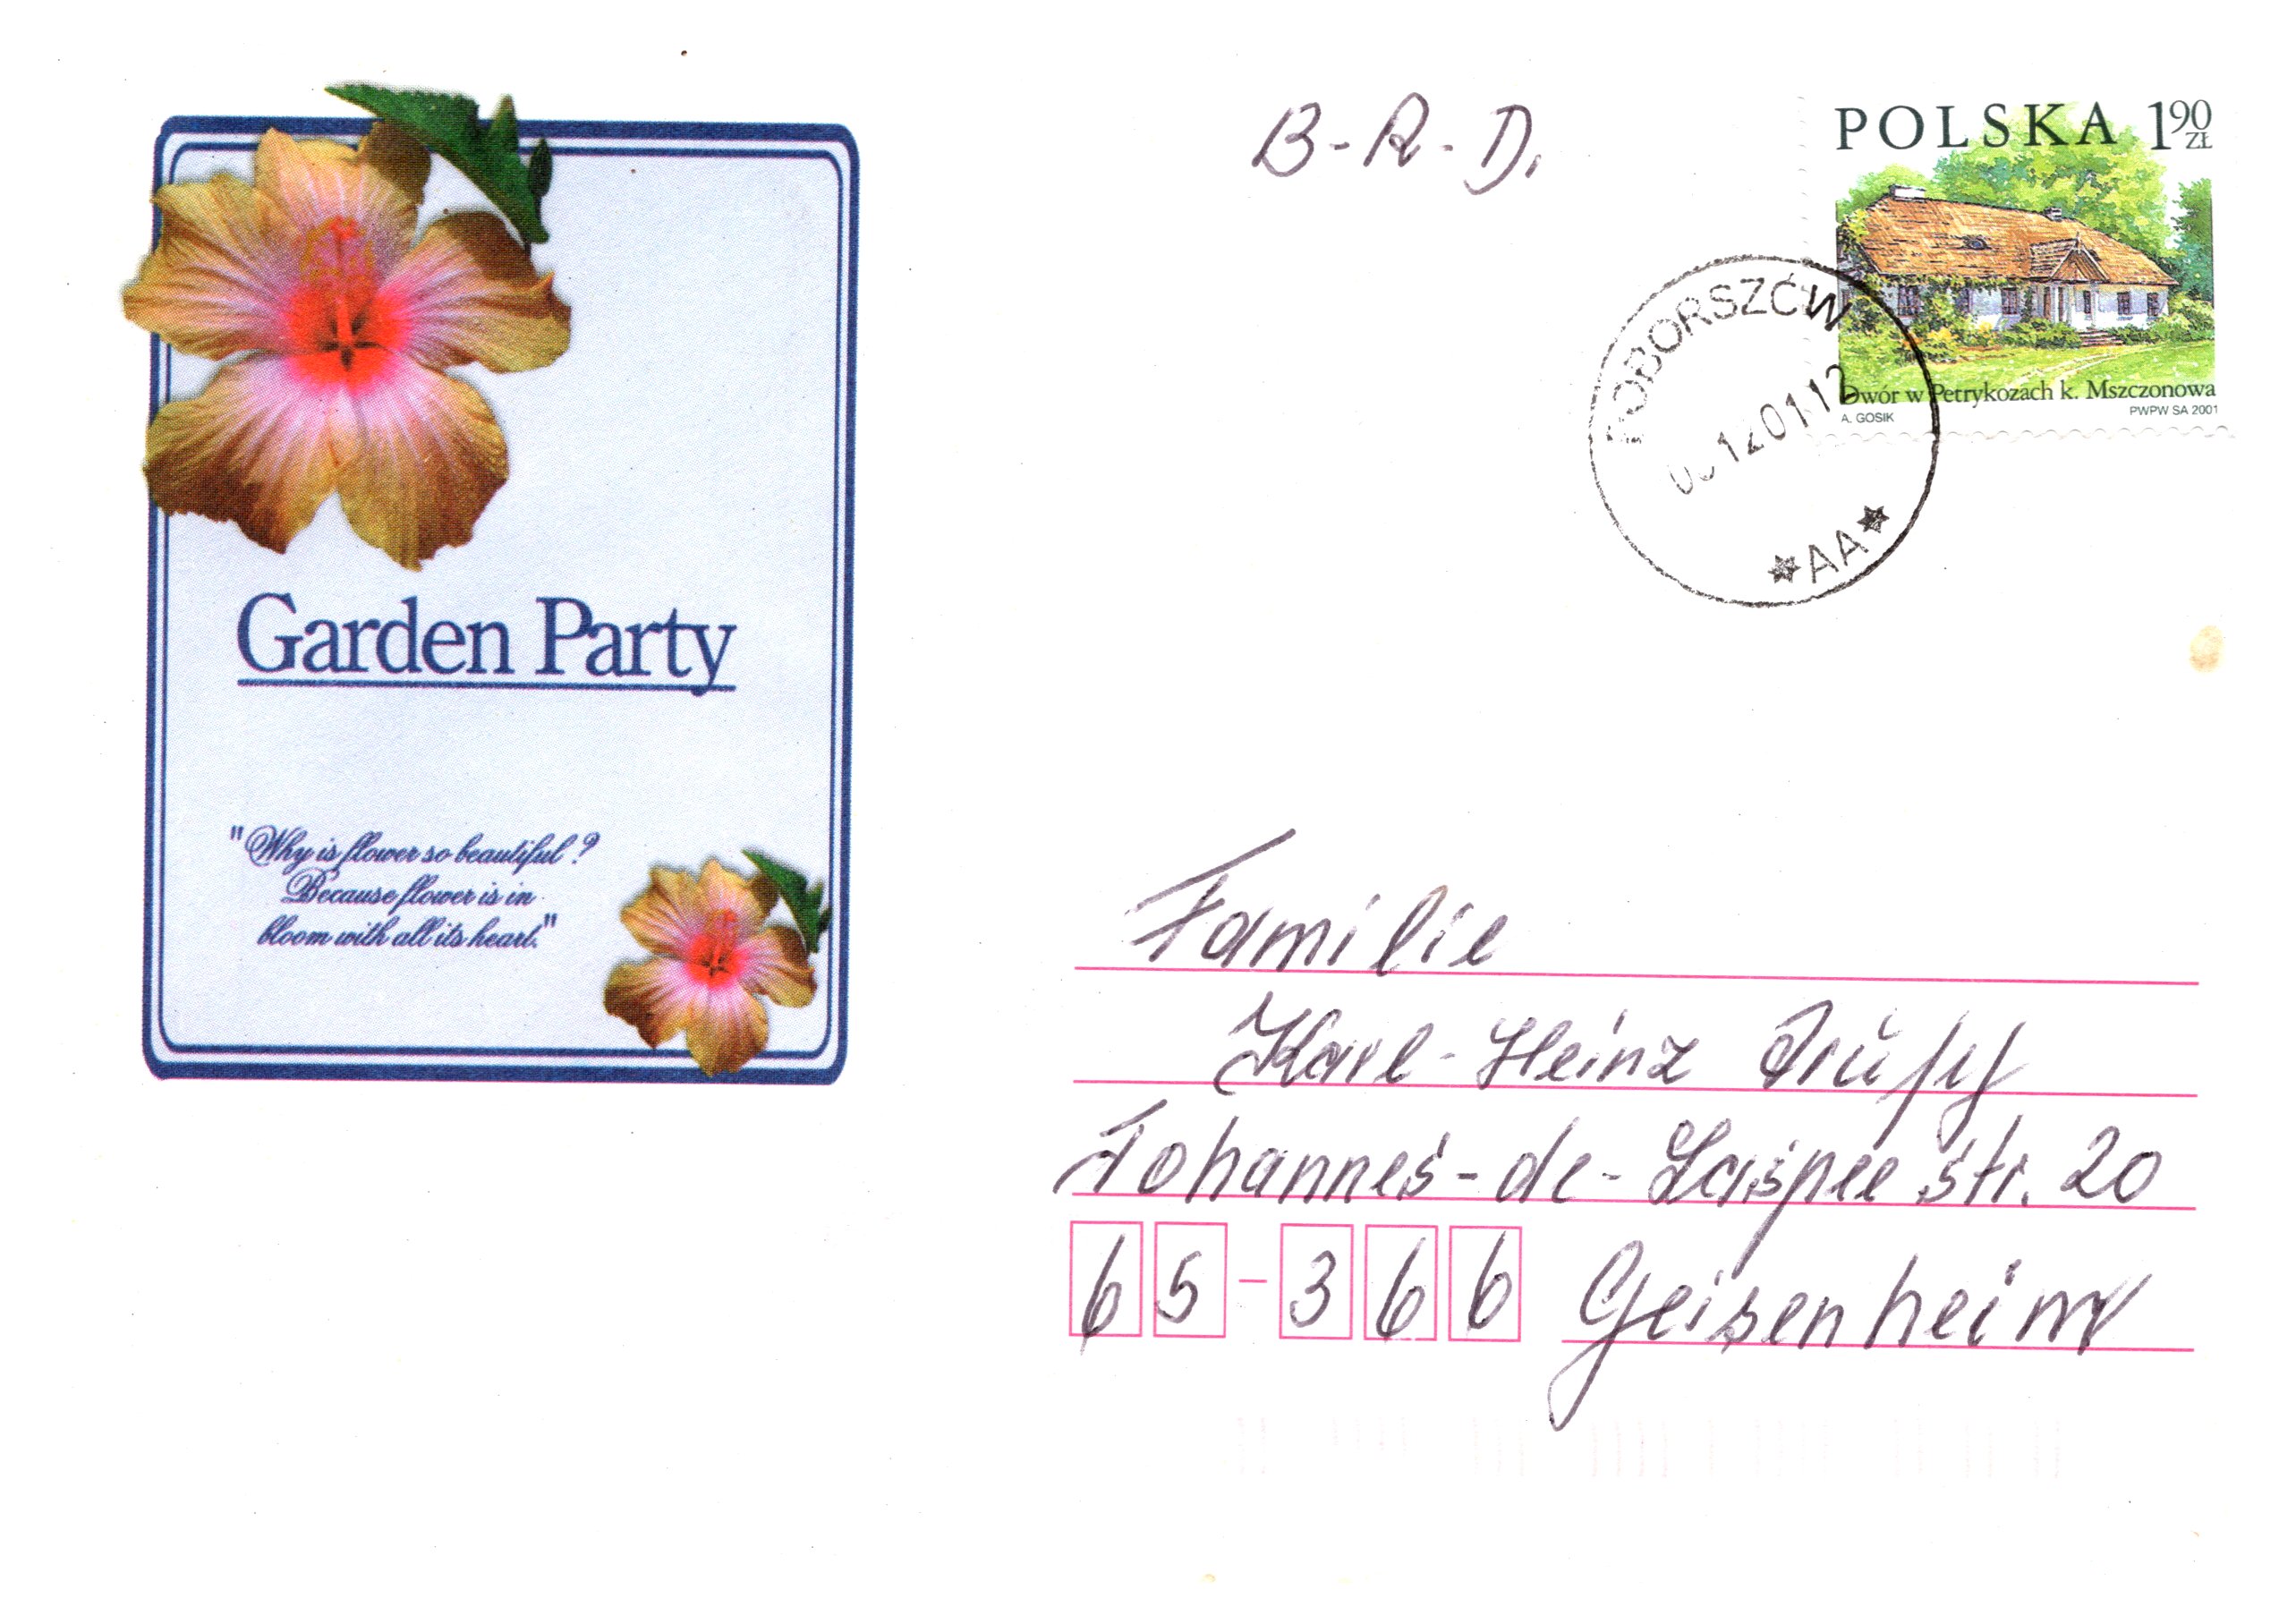 B-R-D.
POLSKA 1 90 ZŁ
Dwór w Petrykozach k. Mszczonowa
A. GOSIK
PWPW SA 2001
12
*AA*
Garden Party
"Why is flower so beautiful?
Because flower is in
bloom with all its heart."
Familie
Karl-Heinz
Johannes-de-Laspee str. 20
65-366 Geisenheim